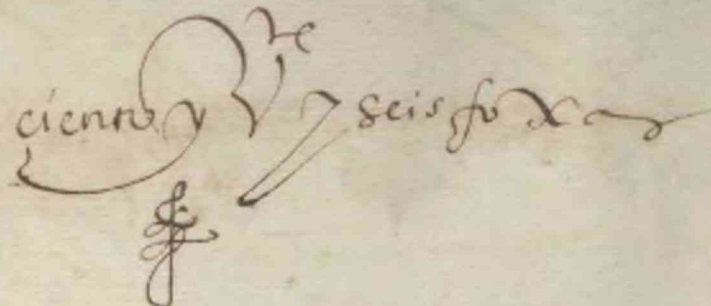 ciento y V^te y seis foxas